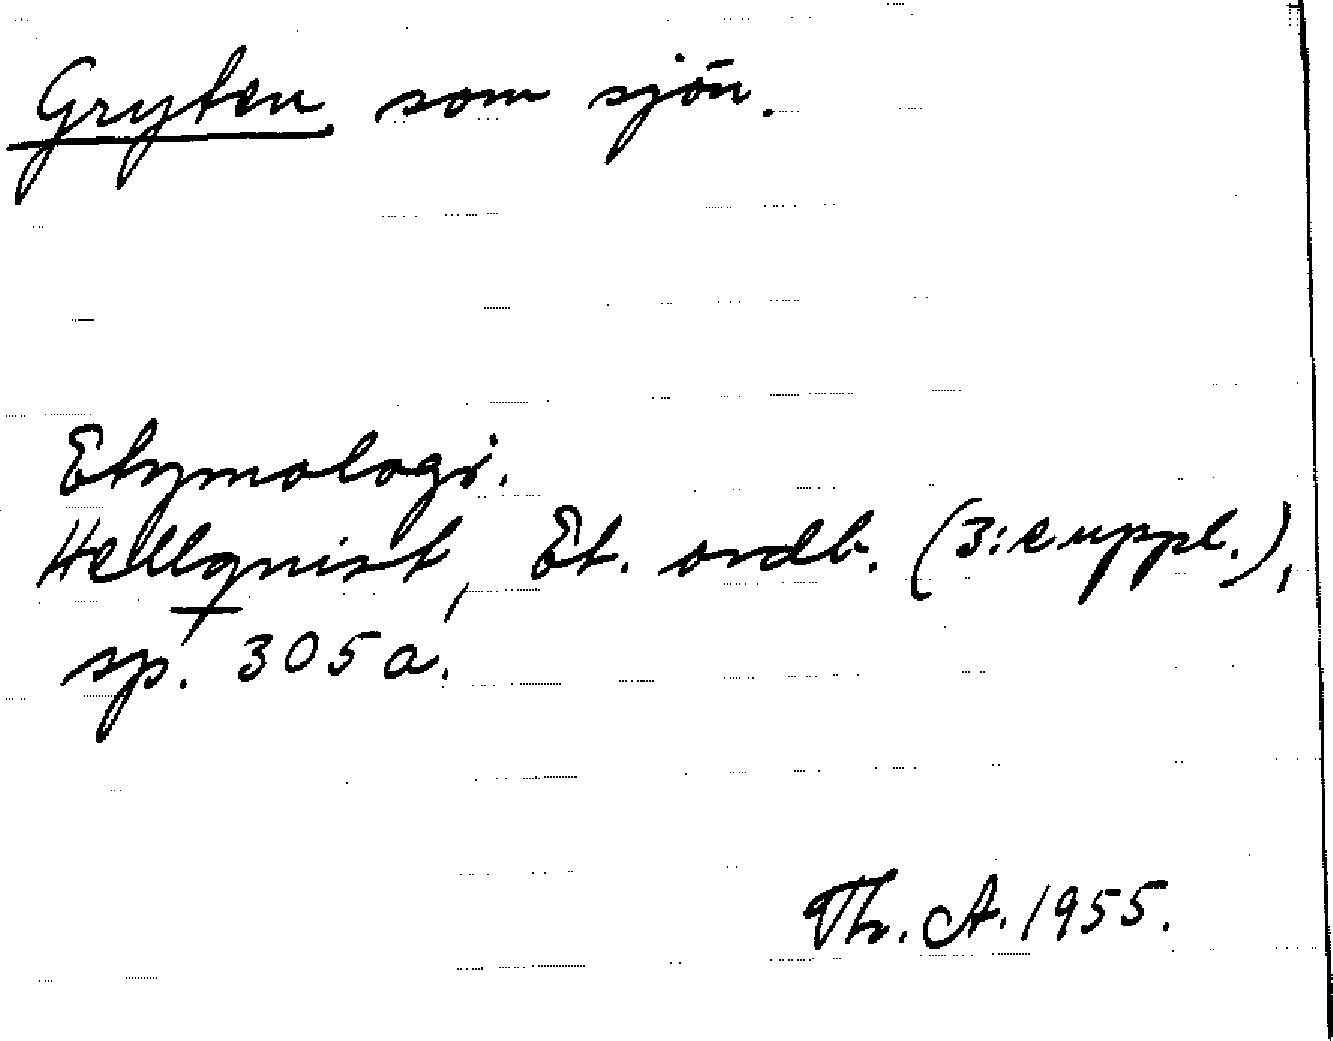 Gryten som sjön.
Etymologi.
Hellquist, Et. ordb. (3:e uppl.),
sp. 305 a.
Th. A. 1955.